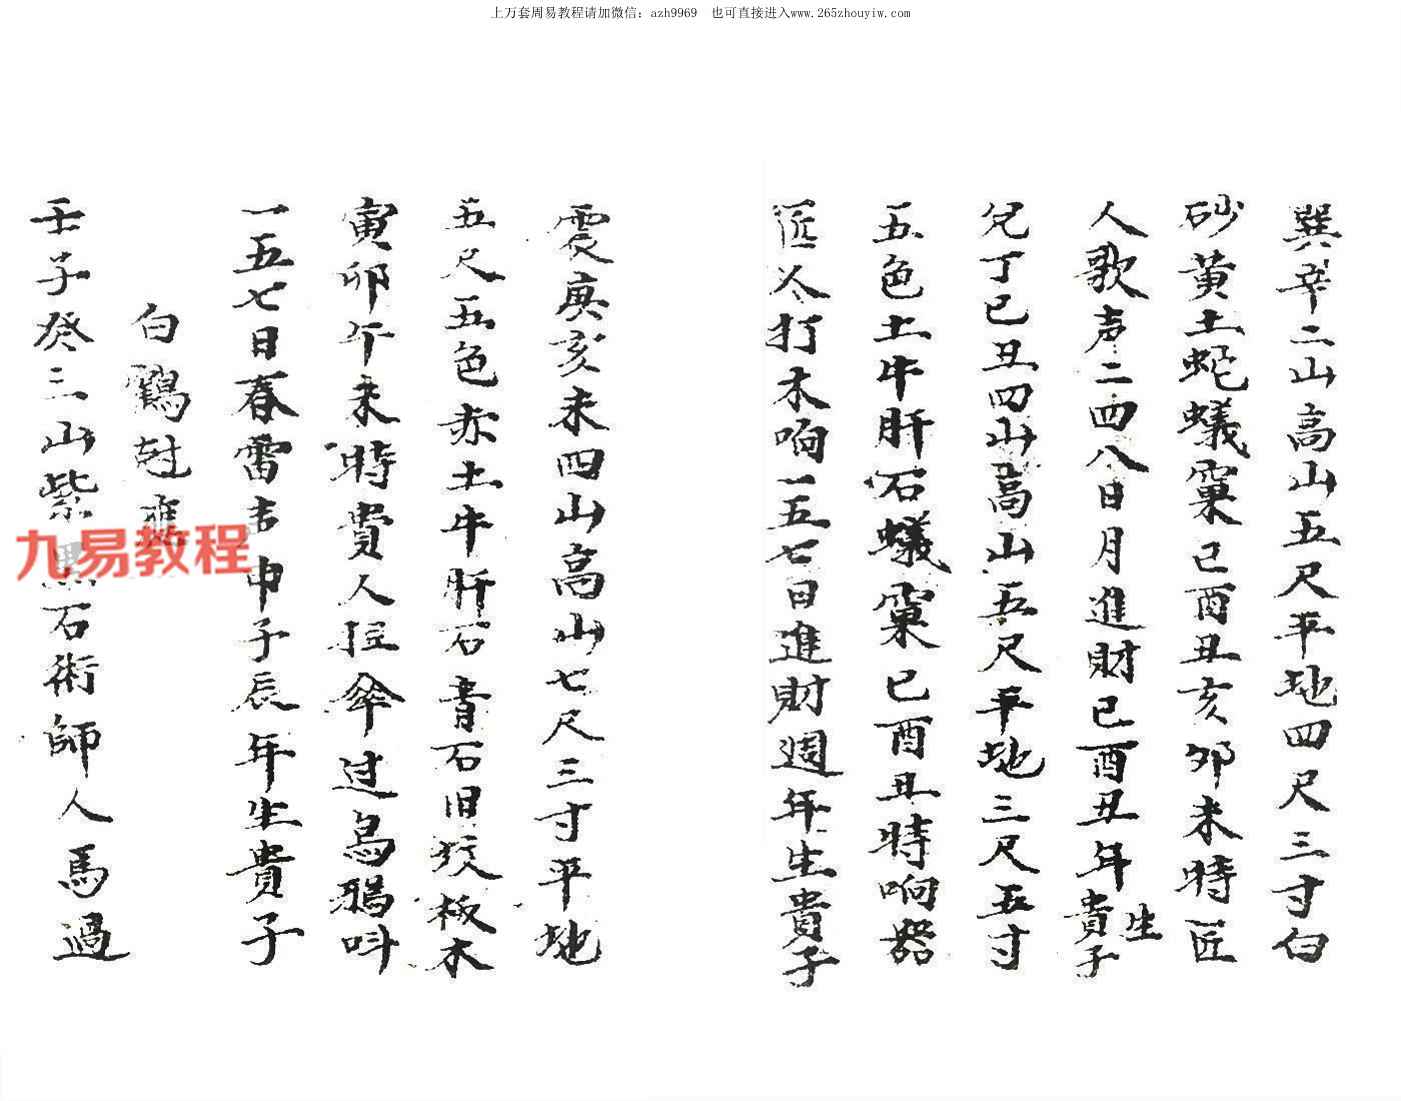 上万套周易教程请加微信：azh9969 也可直接进入www.265zhouyiw.com
巽辛二山高山五尺平地四尺三寸白
砂黄土蛇蟻窠巳酉丑亥卯未時匠
人歌声二四八日月進財巳酉丑年生貴子
兑丁巳丑四山高山五尺平地三尺五寸
五色土牛肝石蟻窠巳酉丑時响器
匠人打木响一五七日進財週年生貴子
震庚亥未四山高山七尺三寸平地
五尺五色赤土牛肝石青石旧坟板木
寅卯午未時貴人打伞过烏鴉叫
一五七日春雷吉申子辰年生貴子
白鶴尅應
壬子癸三山紫黑石術師人馬過
九易教程